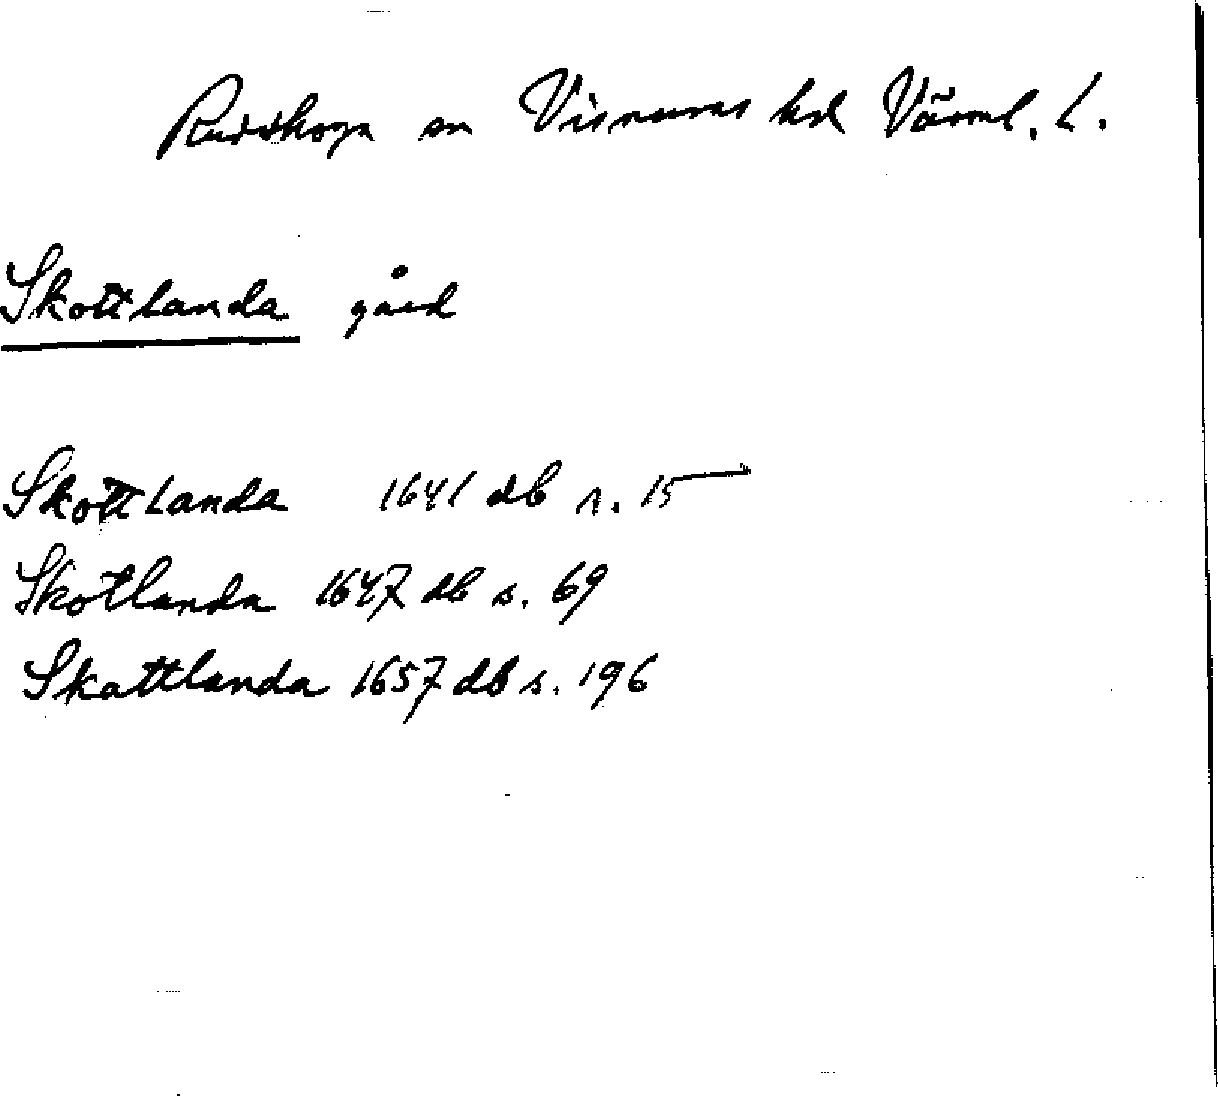 Rudskoga sn Visnums hd Värml. L.
Skottlanda gård
Skottlanda 1641 db s. 15
Skotlanda 1647 db s. 69
Skattlanda 1657 db s. 196